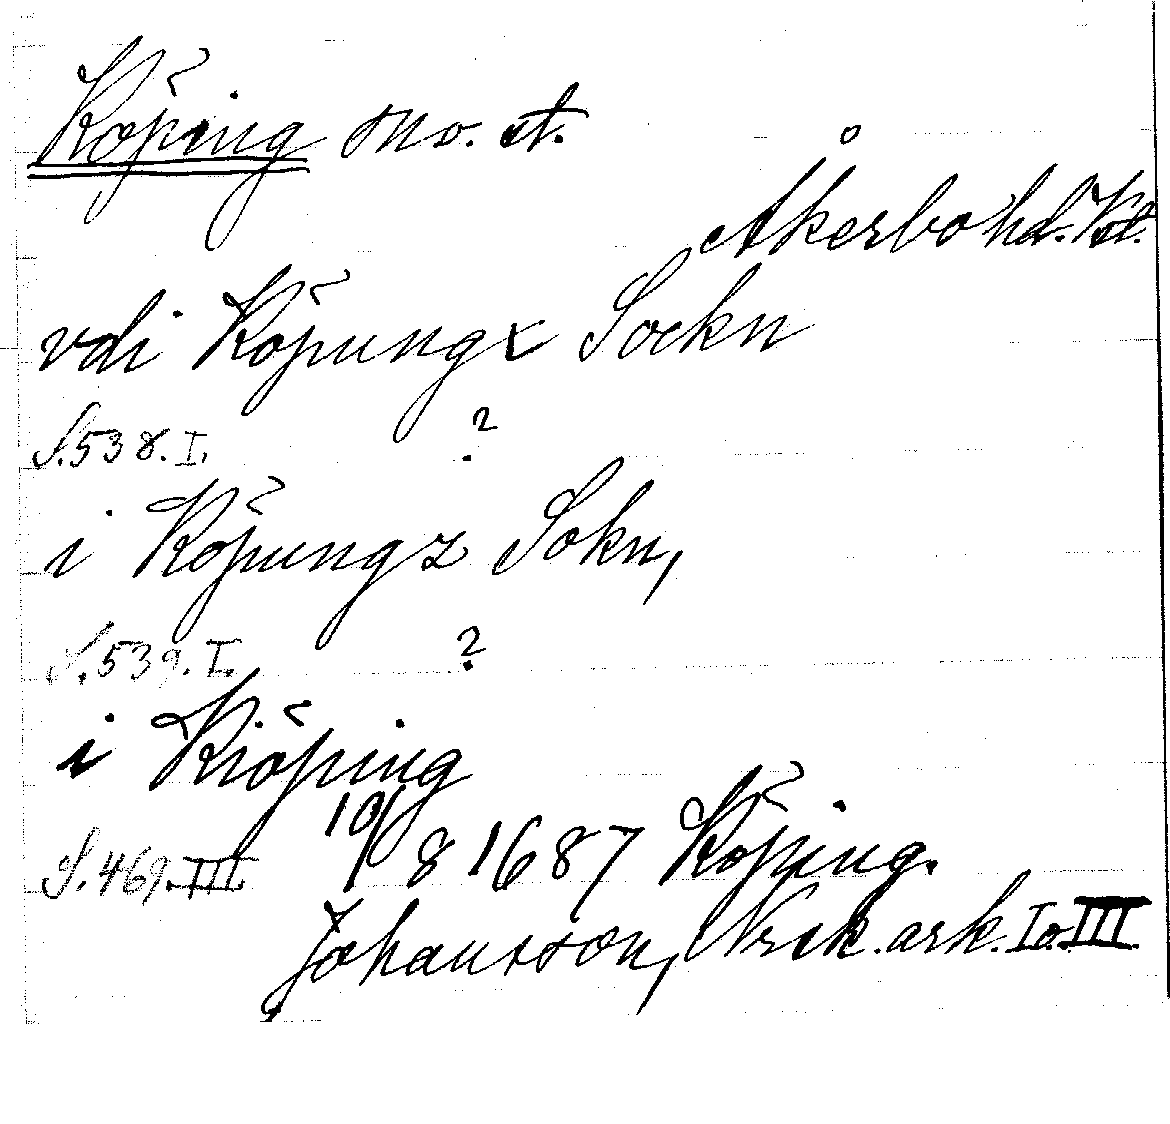 Köping sno. st.
Åkerbo hd. Vst.
vdi Köpungx Sockn
S. 538. I. ?
i Köpungz Sokn,
S. 539. I. ?
i Kiöping
S. 469. III. 10/8 1687 Köping.
Johansson, Nrik. ark. I o. III